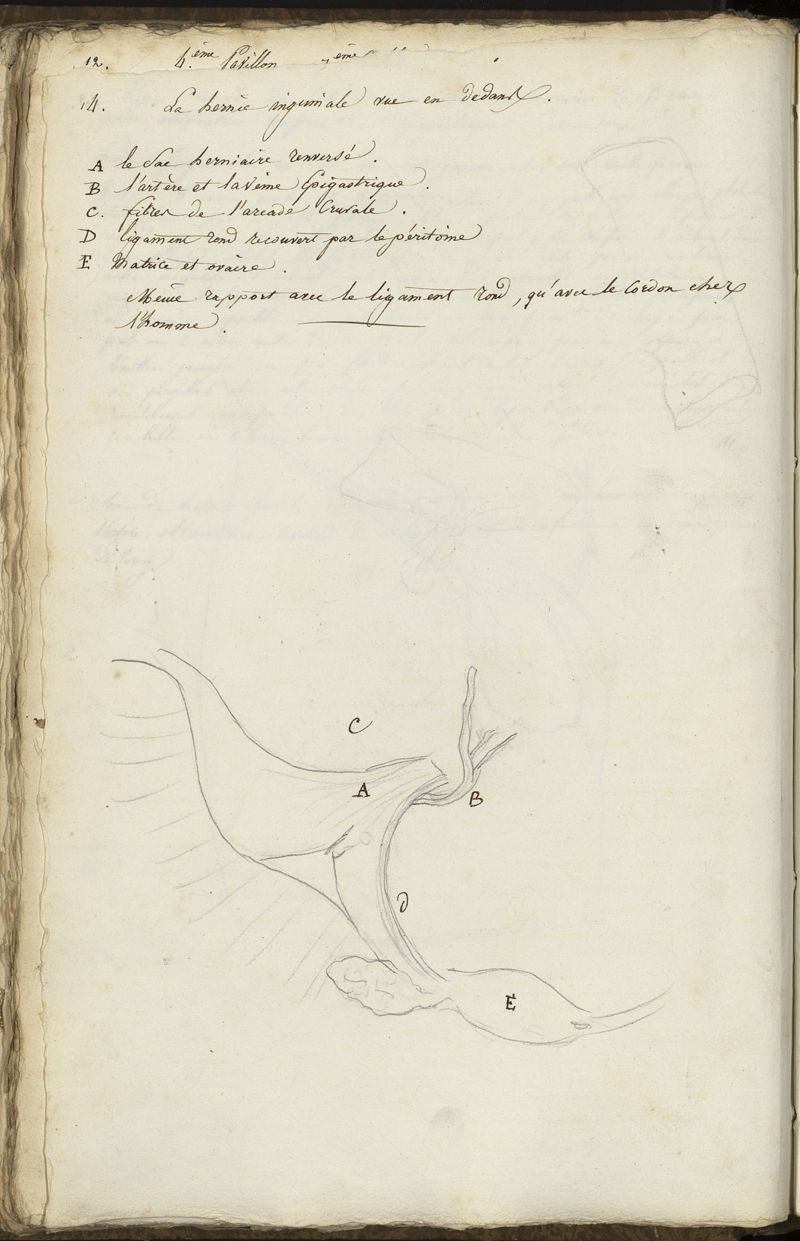 12. 4.ème Pavillon ème
14. La hernie inguinale vue en dedans.
A le Sac herniaire renversé.
B l'artère et la Veine Epigastrique.
C. fibres de l'arcade Crurale.
D ligament rond recouvert par le péritoine
E Matrice et ovaire.
Même rapport avec le ligament rond, qu'avec le Cordon chez
l'homme.
C
A
B
D
E